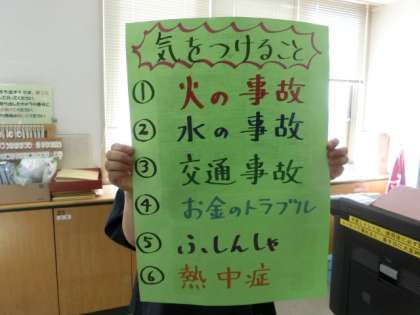 気をつけること
① 火の事故
② 水の事故
③ 交通事故
④ お金のトラブル
⑤ ふしんしゃ
⑥ 熱中症